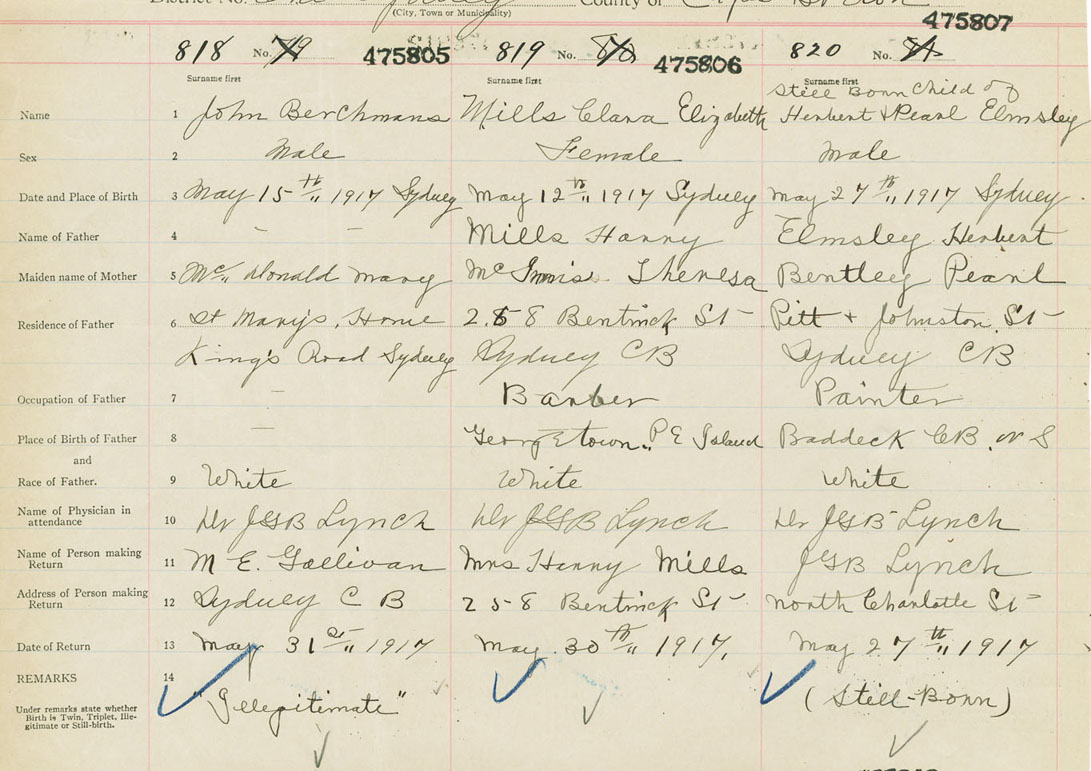 District No. Sydney County of Cape Breton
(City, Town or Municipality)
475807
818 No. 79 475805 819 No. 80 475806 820 No. 81
Surname first Surname first Surname first
Name 1 John Berchmans Mills Clara Elizabeth Still Born Child of
Herbert + Pearl Elmsley
Sex 2 Male Female Male
Date and Place of Birth 3 May 15th 1917 Sydney May 12th 1917 Sydney May 27th 1917 Sydney.
Name of Father 4 - - Mills Harry Elmsley Herbert
Maiden name of Mother 5 Mc Donald Mary Mc Innis Theresa Bentley Pearl
Residence of Father 6 St Mary's, Home 258 Bentinck St Pitt + Johnston St
King's Road Sydney Sydney CB Sydney CB
Occupation of Father 7 - Barber Painter
Place of Birth of Father 8 - Georgetown. P E Island Baddeck CB. N S
and
Race of Father. 9 White White White
Name of Physician in
attendance 10 Dr JGB Lynch Dr JGB Lynch Dr JGB Lynch
Name of Person making
Return 11 M E. Gallivan Mrs Harry Mills JGB Lynch
Address of Person making
Return 12 Sydney C B 258 Bentinck St North Charlotte St
Date of Return 13 May 31st 1917 May 30th 1917, May 27th 1917
REMARKS 14
Under remarks state whether
Birth is Twin, Triplet, Ille-
gitimate or Still-birth.
"Illegitimate" (Still-Born)